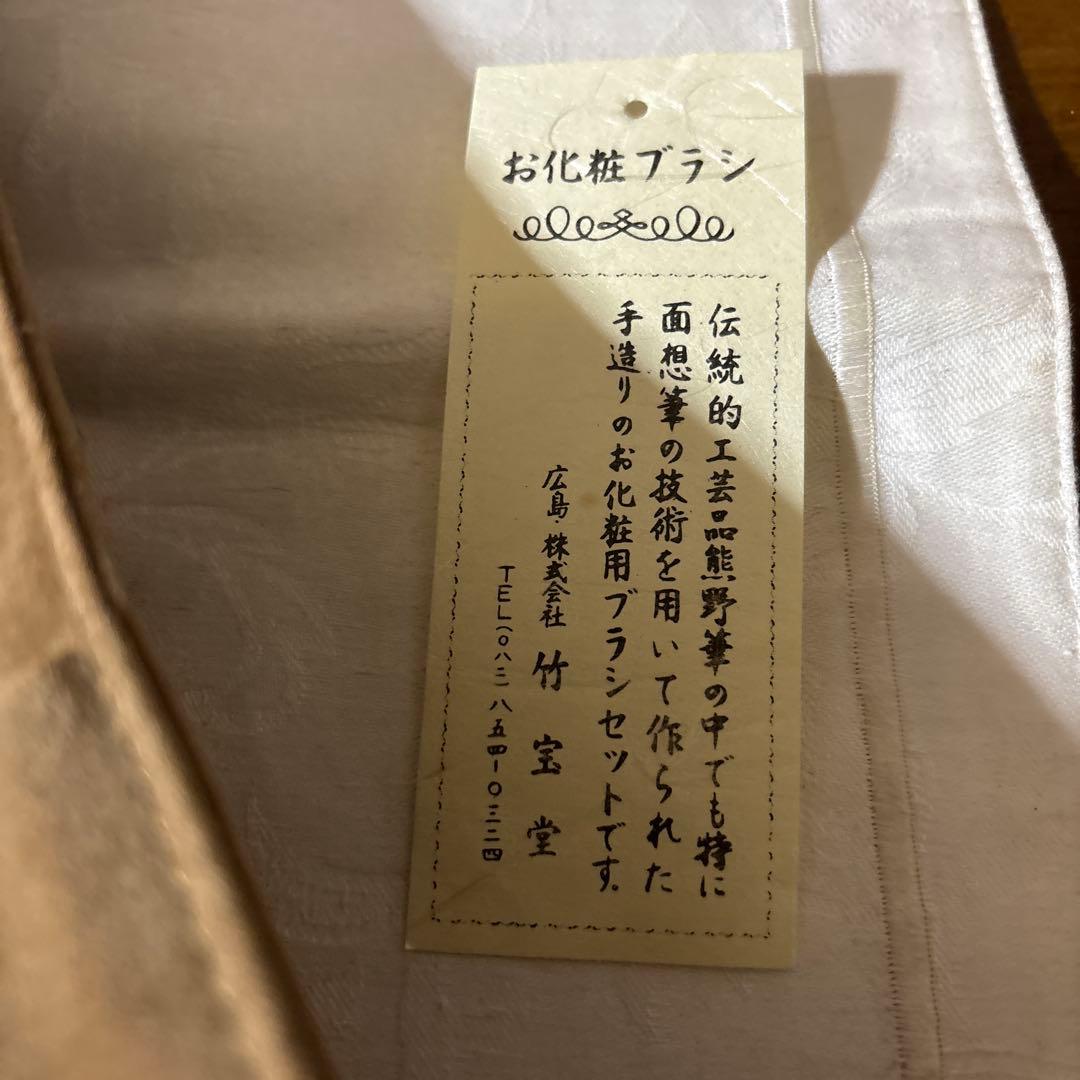 お化粧ブラシ
伝統的工芸品熊野筆の中でも特に
面想筆の技術を用いて作られた
手造りのお化粧用ブラシセットです。
広島・株式会社 竹宝堂
TEL(〇八二)八五四-〇三二四